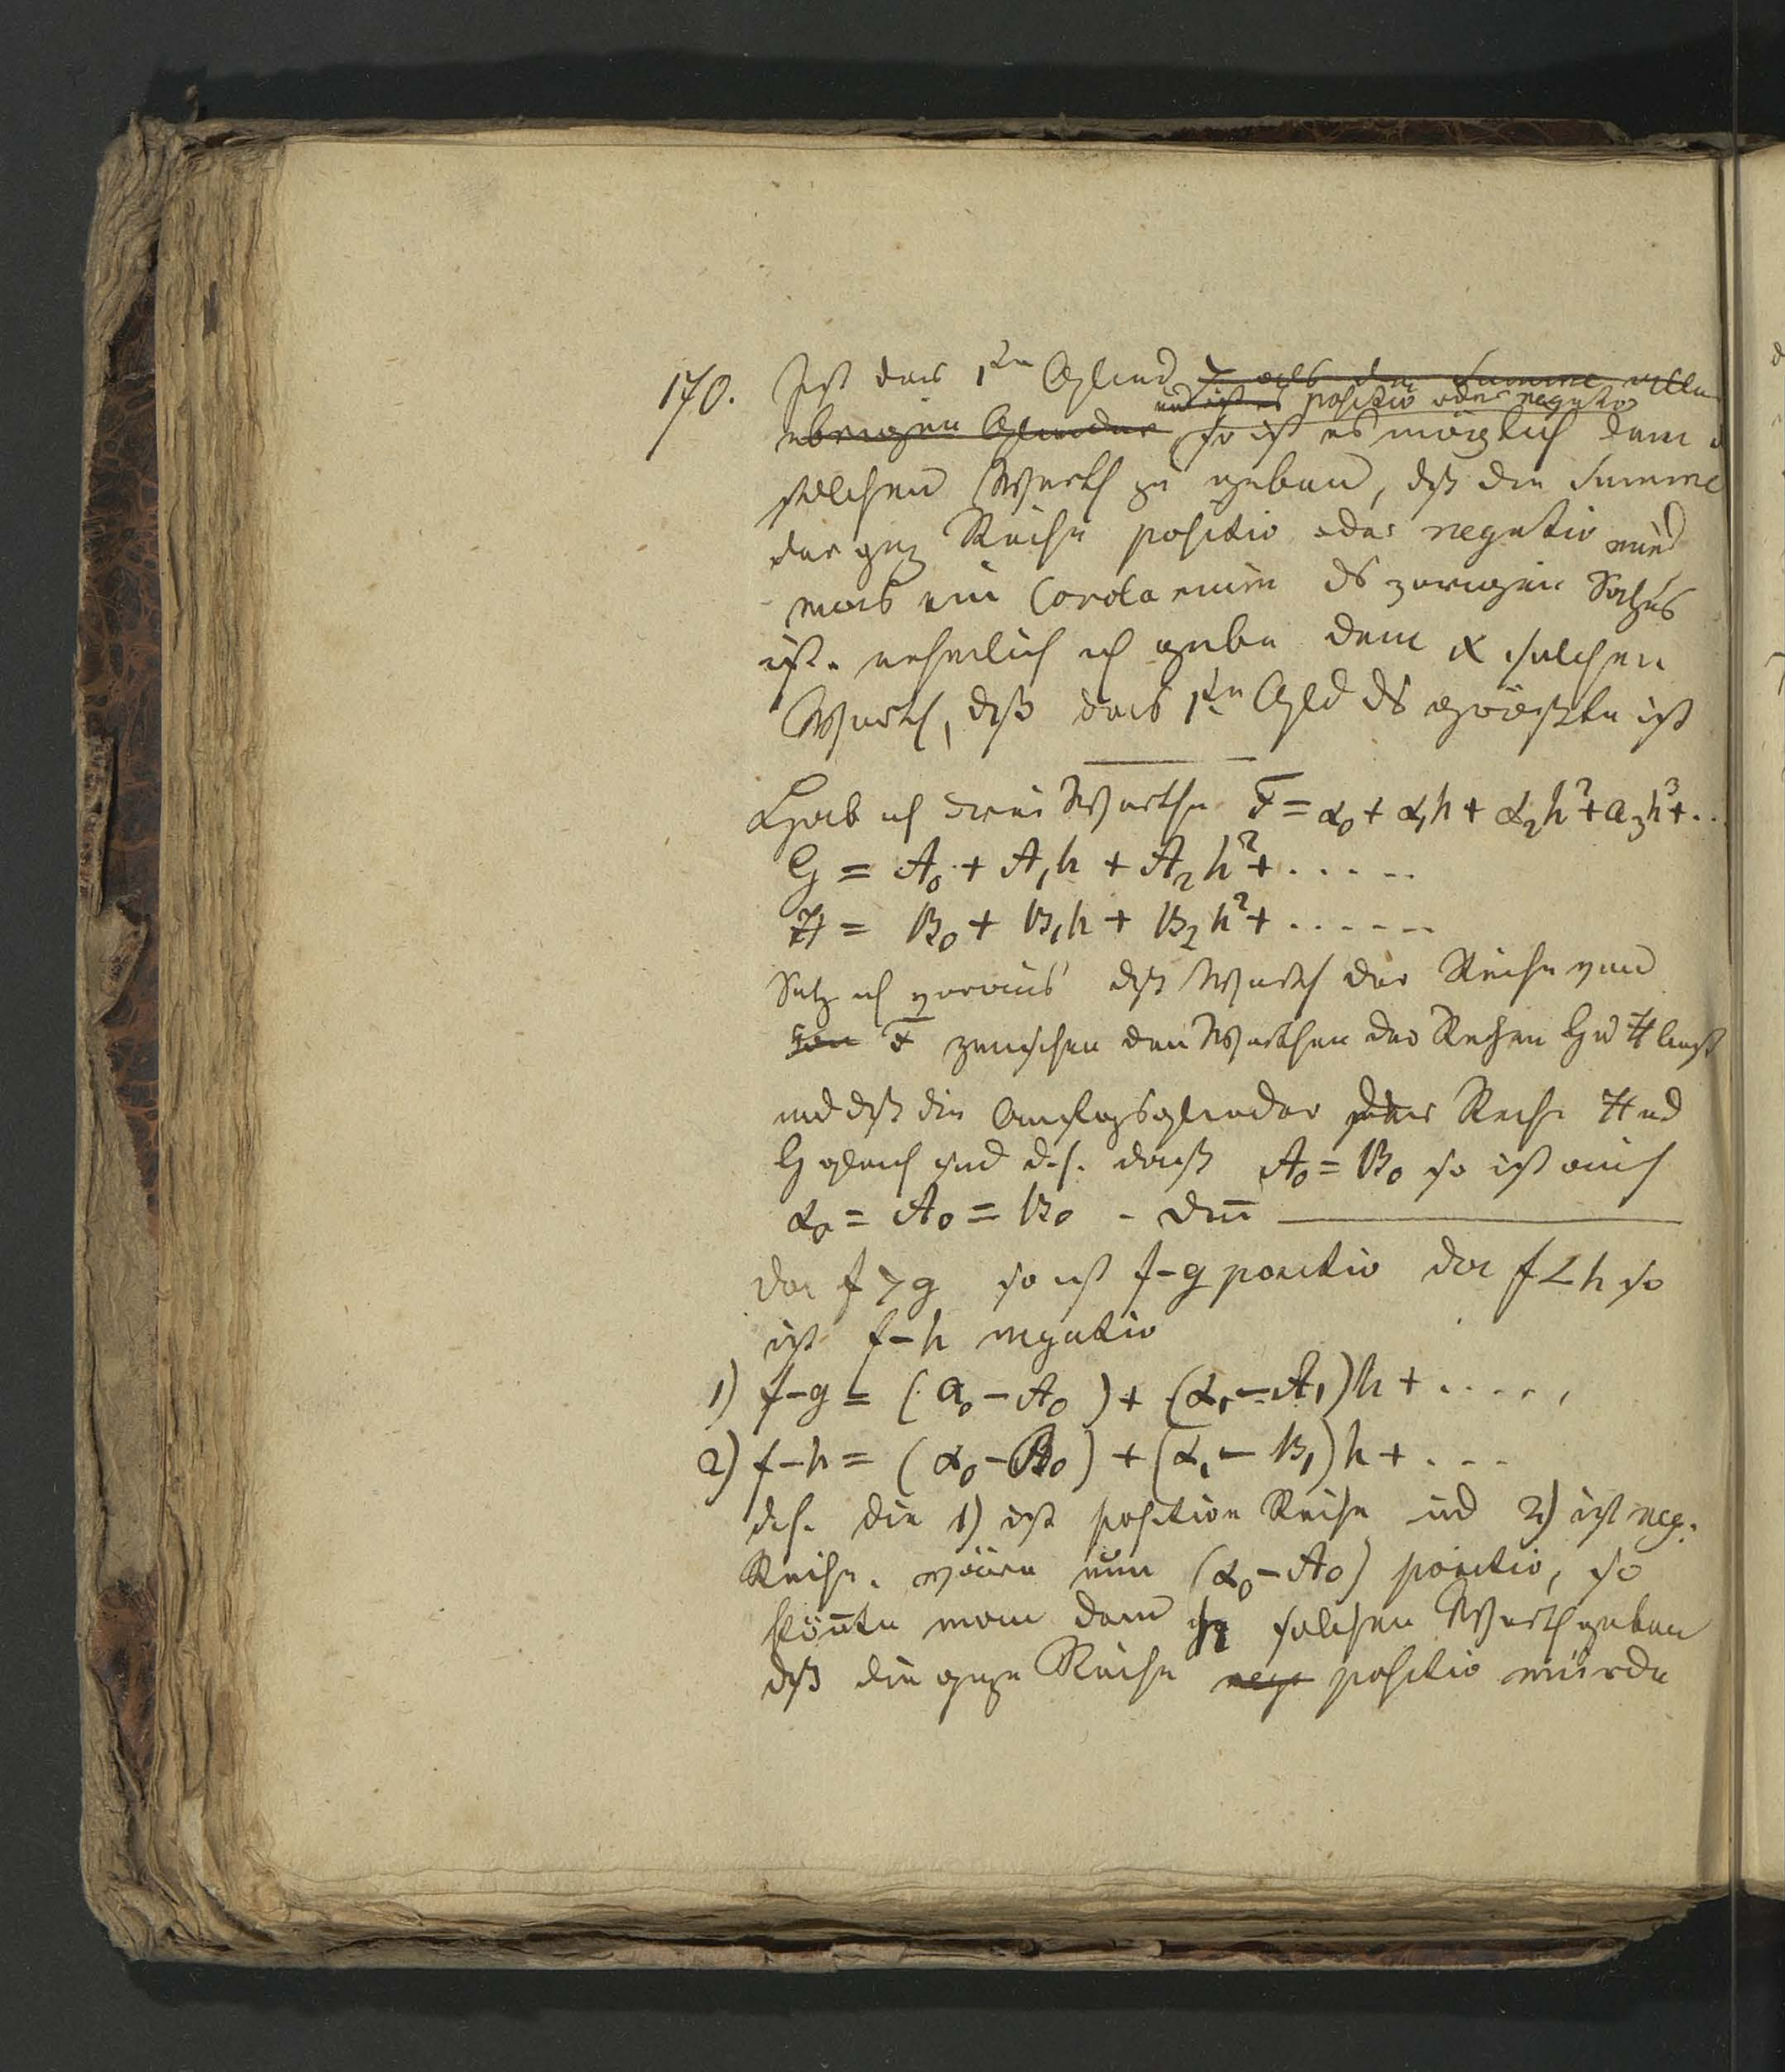 170. Ist das 1te Glied > als die Summe aller
und ist es positiv oder negativ
übrigen Glieder so ist es möglich dem
solchen Werth zu geben, dß die Summe
der gz Reihe positiv oder negativ wird
was ein Corolarium ds vorigen Satzes
ist. nehmlich ich gebe dem x solchen
Werth, dß das 1te Gld ds größte ist
Hab ich drei Werthe F = α0 + α1h + α2h² + α3h³ + ...
G = A0 + A1h + A2h² + .....
H = B0 + B1h + B2h² + ......
Setz ich voraus dß Werth der Reihe
von F zwischen den Werthen der Reihen G u H liegt
und dß die Anfagsglieder der Reihe H und
G gleich sind d.h. daß A0 = B0 so ist auch
α0 = A0 = B0 - den̄
da f > g so ist f-g positiv da f < h so
ist f-h negativ
1) f-g = (α0 - A0) + (α1 - A1)h + .....
2) f-h = (α0 - B0) + (α1 - B1)h + ...
d.h. die 1) ist positive Reihe und 2) ist neg.
Reihe. wäre nun (α0 - A0) positiv, so
kön̄te man dem h solchen Werth geben
dß die gze Reihe neg positiv würde